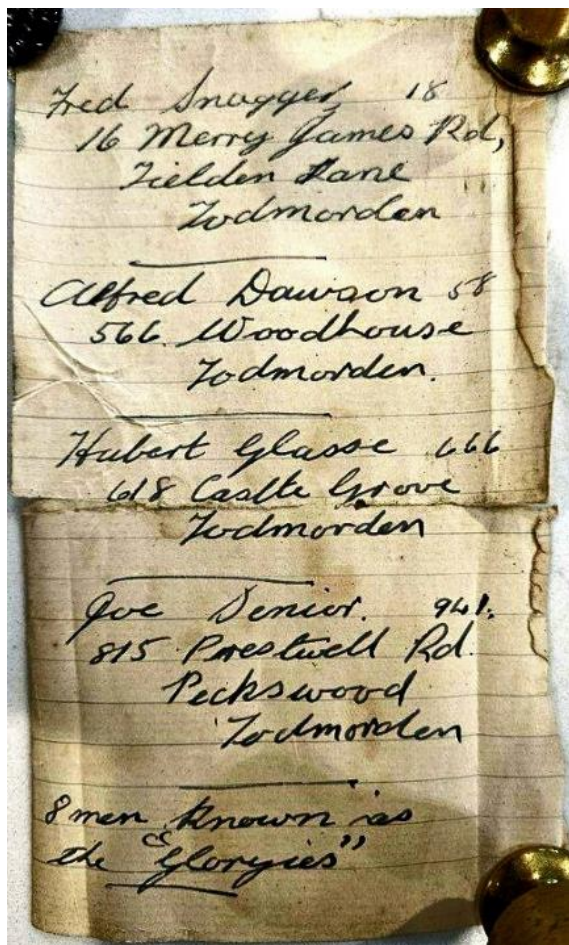 Fred Snagger, 18
16 Merry James Rd,
Fielden Lane
Todmorden
Alfred Dawson 58
566 Woodhouse
Todmorden.
Hubert Glasse 666
618 Castle Grove
Todmorden
Joe Denior. 941.
815 Prestwell Rd.
Peckswood
Todmorden
8 men known as
the "Gloryies"